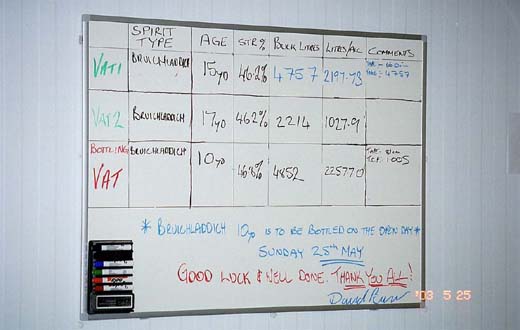 SPIRIT TYPE AGE STR% BULK LITRES LITRES/ALC COMMENTS
VAT 1 BRUICHLADDICH 15yo 46.2% 4757 2197.73
VAT 2 BRUICHLADDICH 17yo 46.2% 2214 1027.91
BOTTLING VAT BRUICHLADDICH 10yo 4852
* BRUICHLADDICH 10yo IS TO BE BOTTLED ON THE OPEN DAY *
SUNDAY 25TH MAY
GOOD LUCK & WELL DONE. THANK YOU ALL!
'03 5 25